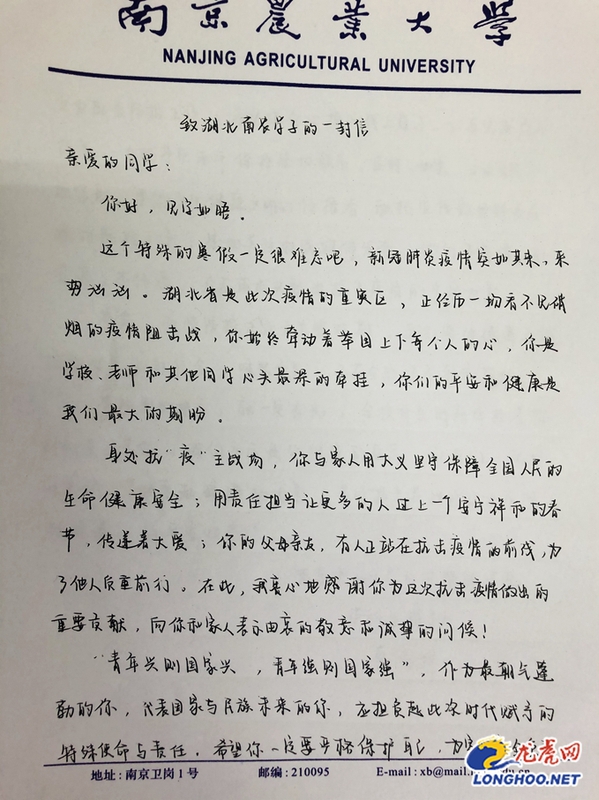 南京农业大学
NANJING AGRICULTURAL UNIVERSITY
致湖北南农学子的一封信
亲爱的同学：
你好，见字如晤。
这个特殊的寒假一定很难忘吧，新冠肺炎疫情突如其来，来
势汹汹。湖北省是此次疫情的重灾区，正经历一场看不见硝
烟的疫情阻击战，你始终牵动着举国上下每个人的心，你是
学校、老师和其他同学心头最深的牵挂，你们的平安和健康是
我们最大的期盼。
身处抗“疫”主战场，你与家人用大义坚守保障全国人民的
生命健康安全；用责任担当让更多的人过上一个安宁祥和的春
节，传递着大爱；你的父母亲友，有人正站在抗击疫情的前线，为
了他人负重前行。在此，我衷心地感谢你为这次抗击疫情做出的
重要贡献，向你和家人表示由衷的敬意和诚挚的问候！
“青年兴则国家兴，青年强则国家强”，作为最朝气蓬
勃的你，代表国家与民族未来的你，应担负起此次时代赋予的
特殊使命与责任。希望你一定要严格保护自己，
地址：南京卫岗1号 邮编：210095 E-mail：xb@mail.
龙虎网
LONGHOO.NET